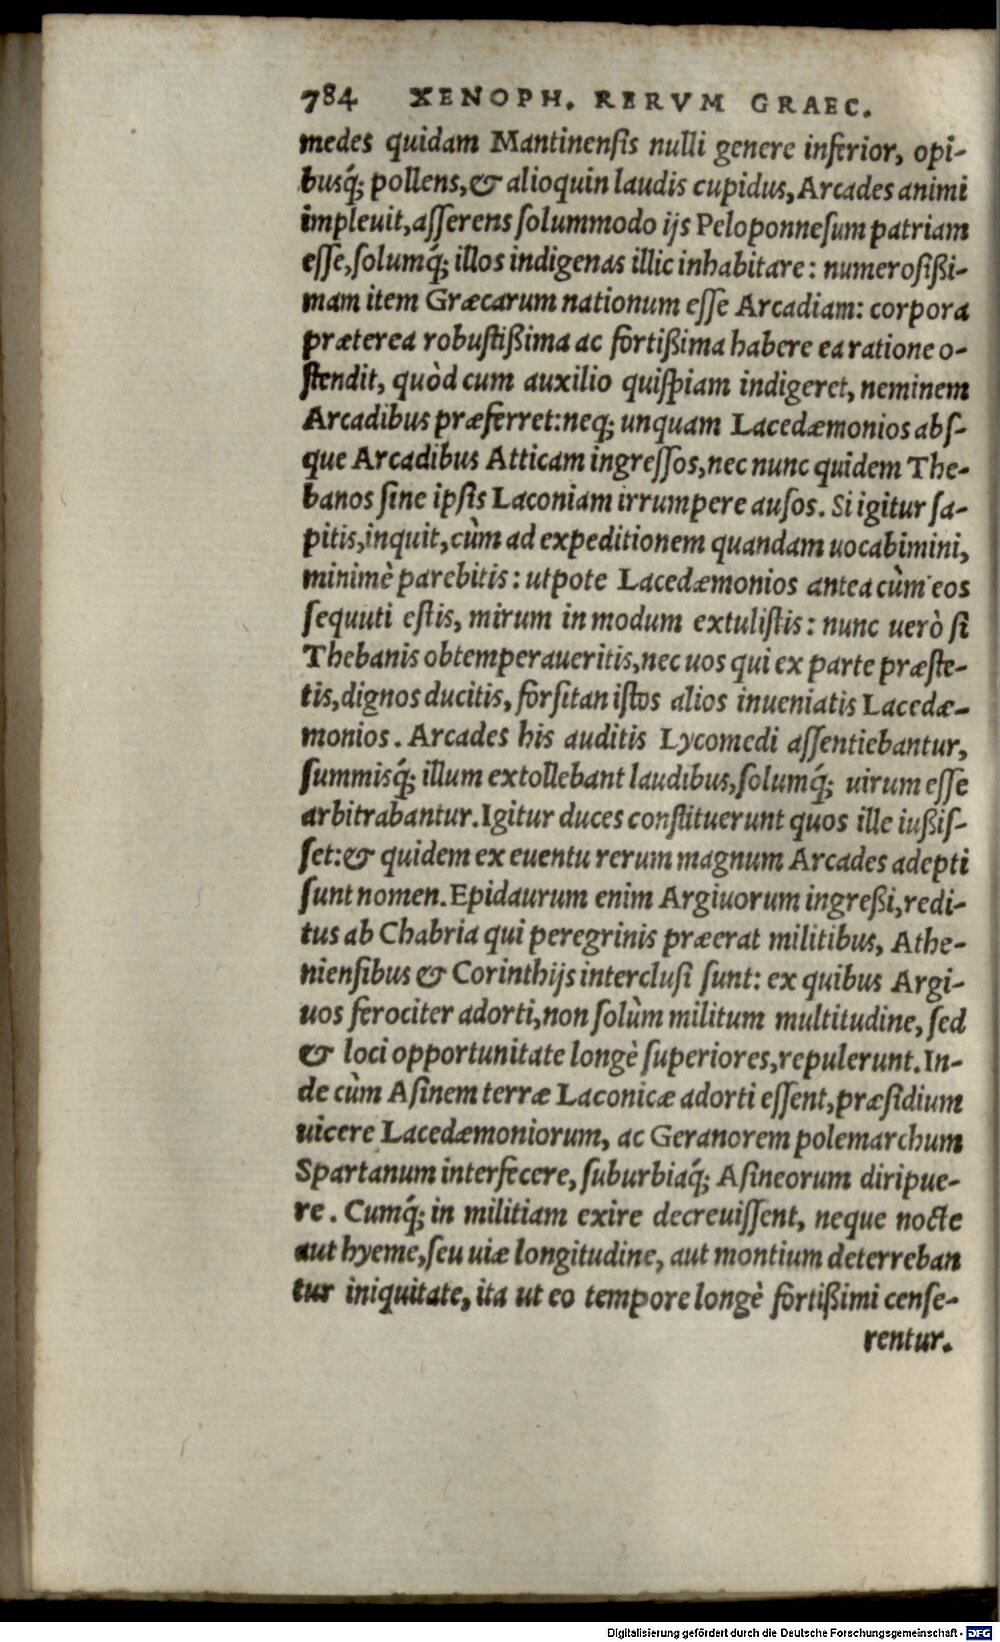 784 XENOPH. RERVM GRAEC.
medes quidam Mantinensis nulli genere inferior, opi-
busq́; pollens, & alioquin laudis cupidus, Arcades animi
impleuit, asserens solummodo ijs Peloponnesum patriam
esse, solumq́; illos indigenas illic inhabitare: numerosißi-
mam item Græcarum nationum esse Arcadiam: corpora
præterea robustißima ac fortißima habere ea ratione o-
stendit, quòd cum auxilio quispiam indigeret, neminem
Arcadibus præferret: neq; unquam Lacedæmonios abs-
que Arcadibus Atticam ingressos, nec nunc quidem The-
banos sine ipsis Laconiam irrumpere ausos. Si igitur sa-
pitis, inquit, cùm ad expeditionem quandam uocabimini,
minimè parebitis: utpote Lacedæmonios antea cùm eos
sequuti estis, mirum in modum extulistis: nunc uerò si
Thebanis obtemperaueritis, nec uos qui ex parte præste-
tis, dignos ducitis, forsitan istos alios inueniatis Lacedæ-
monios. Arcades his auditis Lycomedi assentiebantur,
summisq́; illum extollebant laudibus, solumq́; uirum esse
arbitrabantur. Igitur duces constituerunt quos ille iußis-
set: & quidem ex euentu rerum magnum Arcades adepti
sunt nomen. Epidaurum enim Argiuorum ingreßi, redi-
tus ab Chabria qui peregrinis præerat militibus, Athe-
niensibus & Corinthijs interclusi sunt: ex quibus Argi-
uos ferociter adorti, non solùm militum multitudine, sed
& loci opportunitate longè superiores, repulerunt. In-
de cùm Asinem terræ Laconicæ adorti essent, præsidium
uicere Lacedæmoniorum, ac Geranorem polemarchum
Spartanum interfecere, suburbiaq́; Asineorum diripue-
re. Cumq́; in militiam exire decreuissent, neque nocte
aut hyeme, seu uiæ longitudine, aut montium deterreban
tur iniquitate, ita ut eo tempore longè fortißimi cense-
rentur.
Digitalisierung gefördert durch die Deutsche Forschungsgemeinschaft - DFG